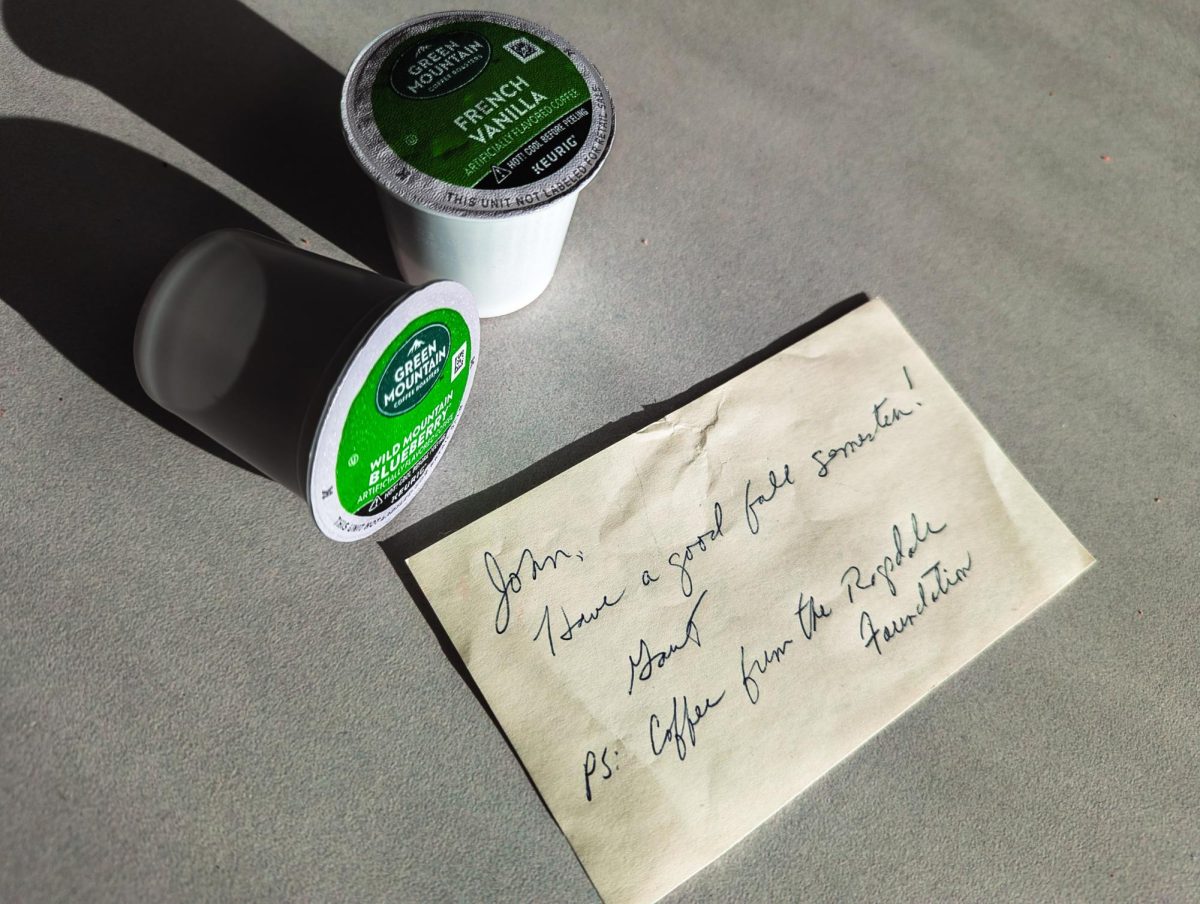 GREEN
MOUNTAIN
COFFEE ROASTERS
FRENCH
VANILLA
ARTIFICIALLY FLAVORED COFFEE
HOT! COOL BEFORE PEELING
KEURIG
THIS UNIT NOT LABELED FOR RETAIL SALE
GREEN
MOUNTAIN
COFFEE ROASTERS
WILD MOUNTAIN
BLUEBERRY
ARTIFICIALLY FLAVORED COFFEE
HOT! COOL BEFORE
KEURIG
THIS UNIT NOT
John,
Have a good fall semester!
Gant
PS: Coffee from the Ragdale
Foundation